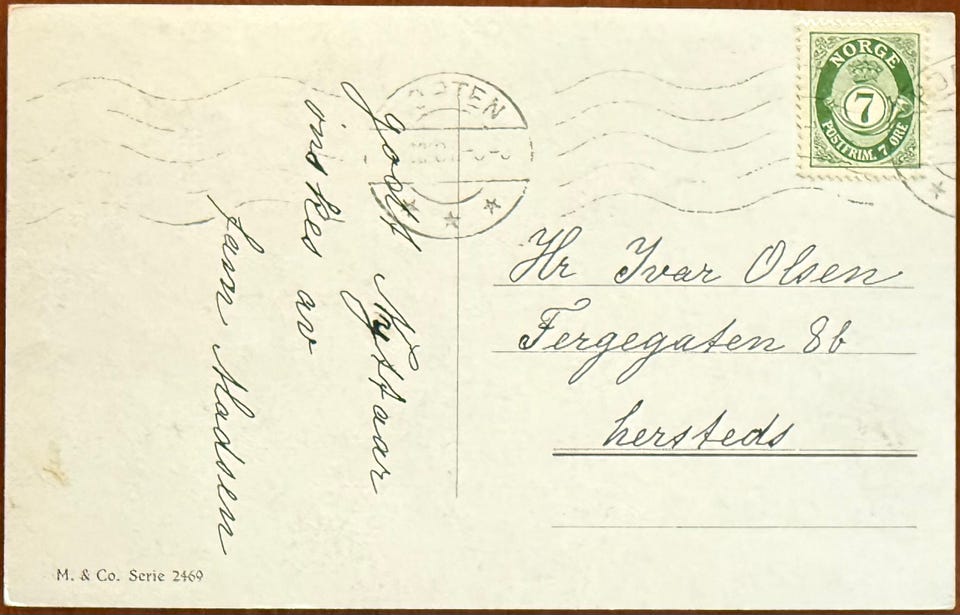 godt Nyttaar
önskes av
Jann Madsen
NORGE
7
POSTFRIM. 7 ØRE
Hr Ivar Olsen
Fergegaten 8b
hersteds
M. & Co. Serie 2469